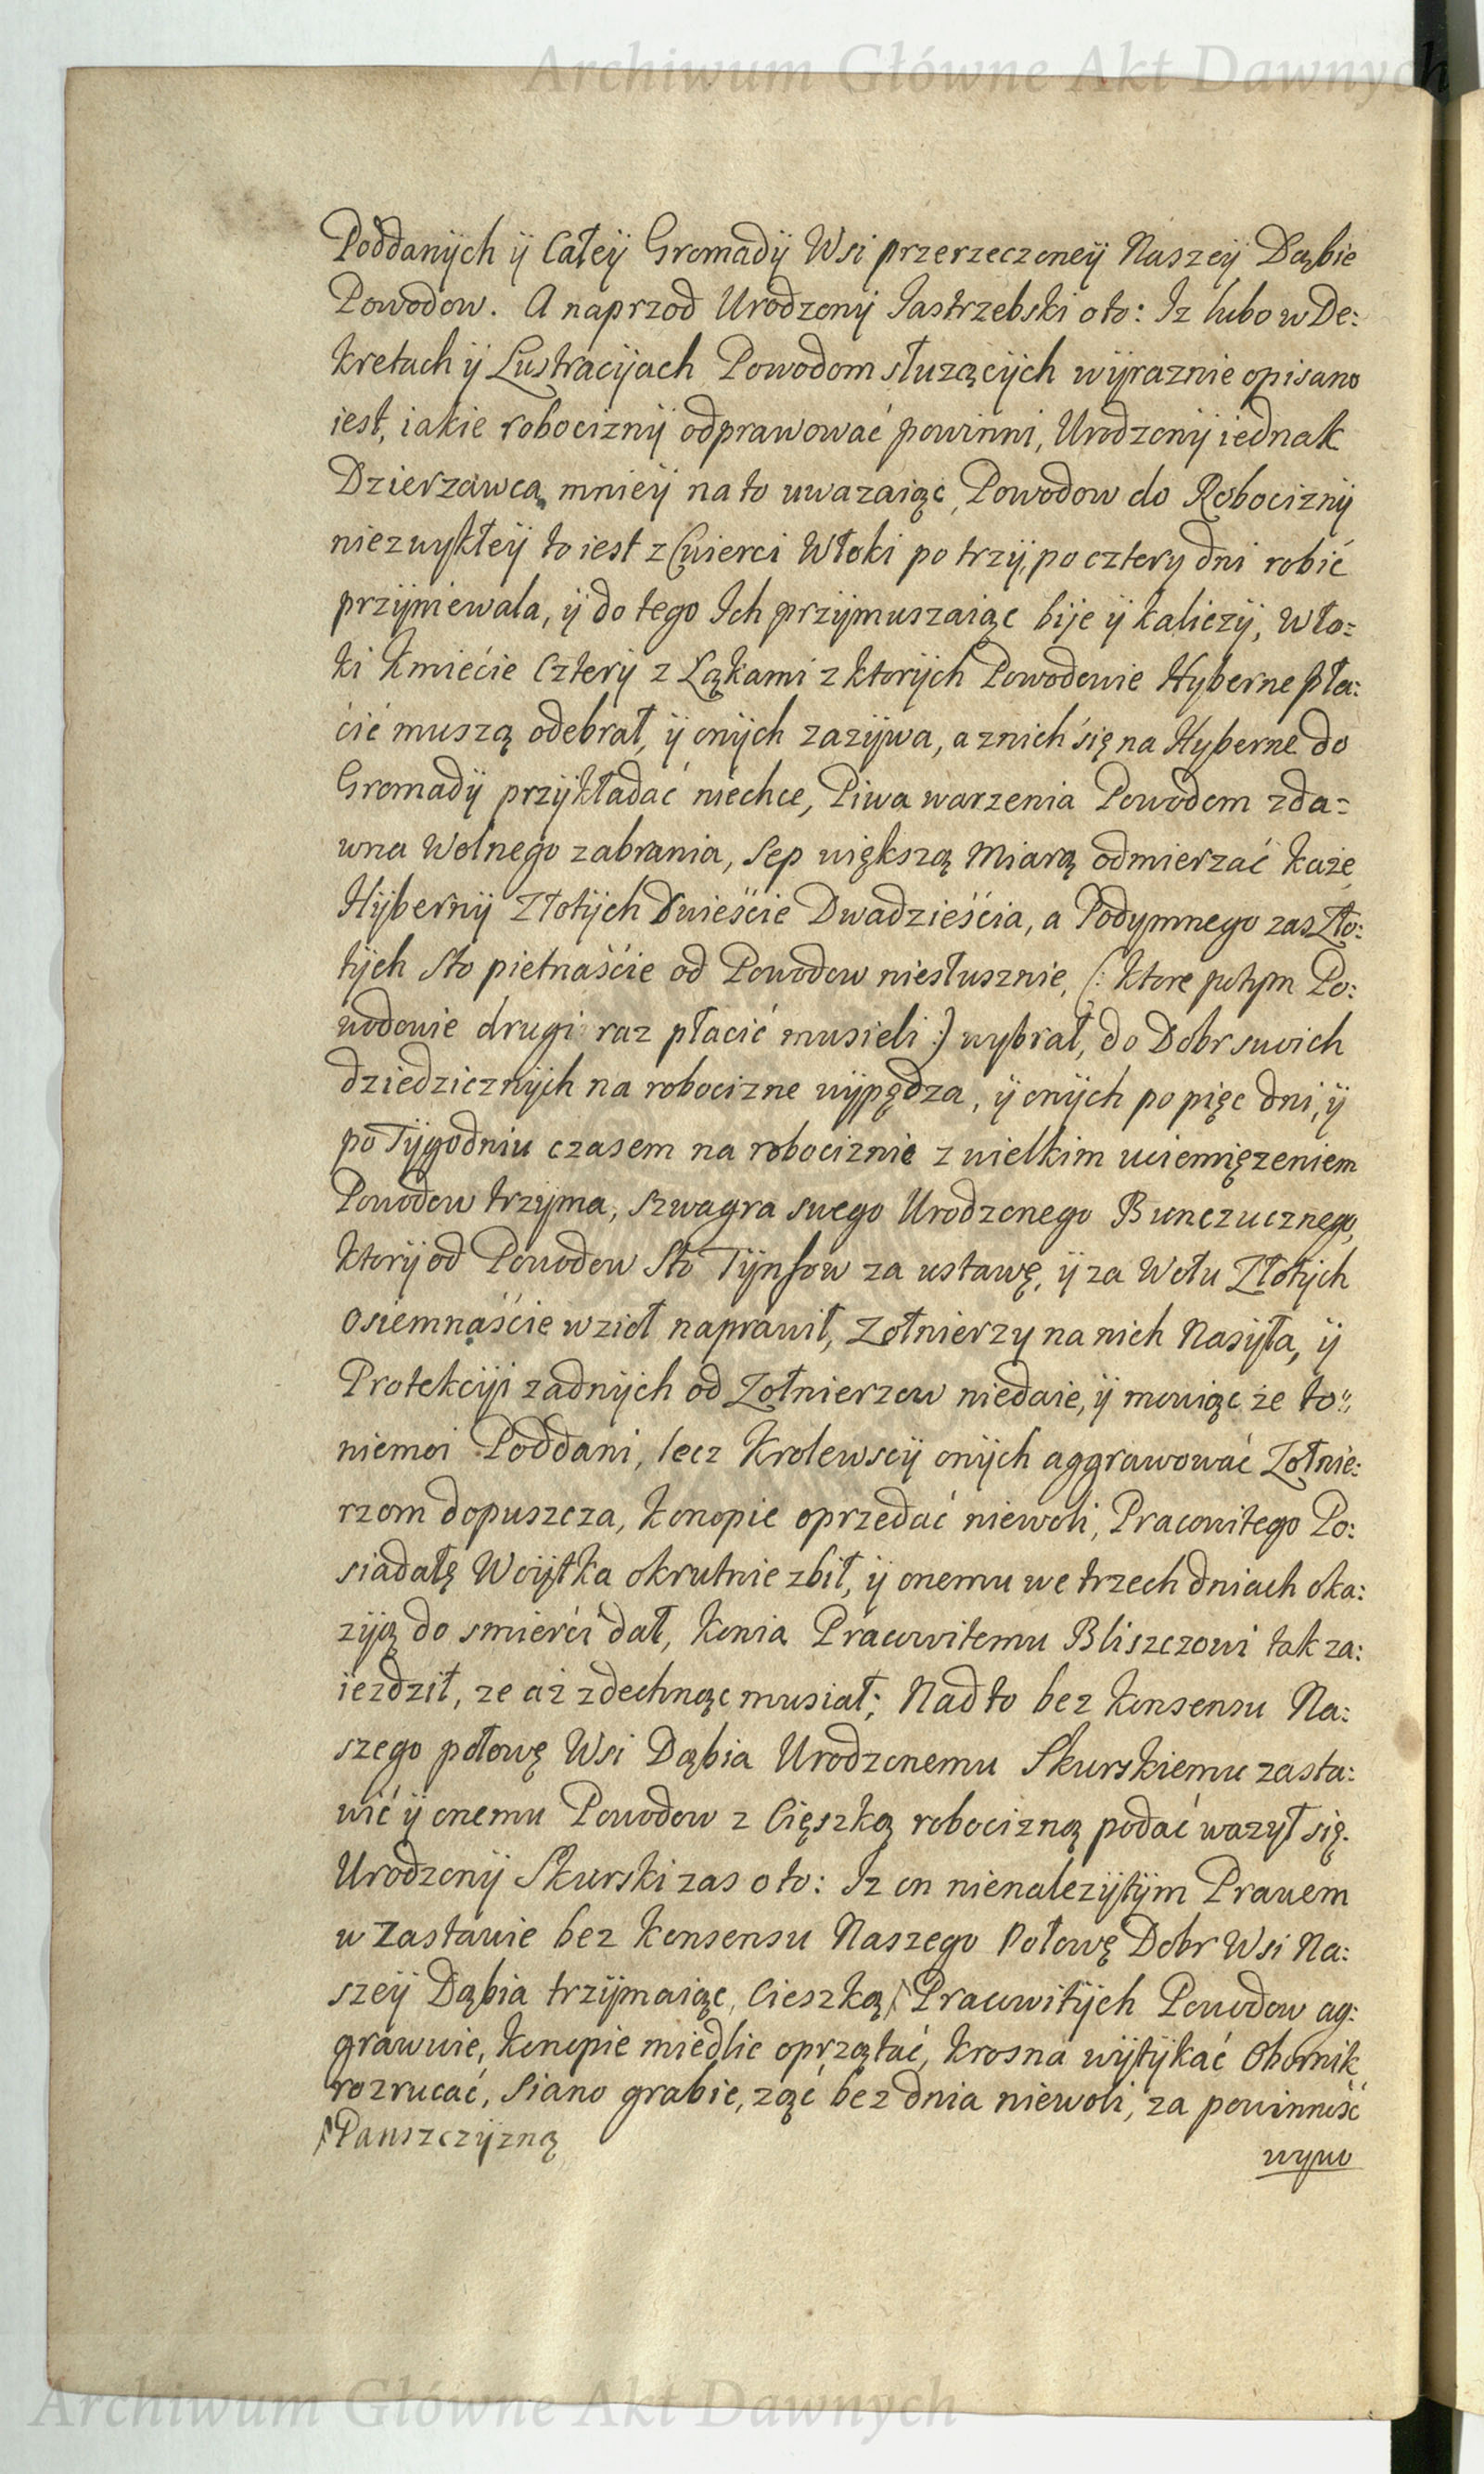 Archiwum Główne Akt Dawnych
Poddanÿch ÿ Całeÿ Gromadÿ Wsi przerzeczoneÿ Naszeÿ Dąbie
Powodow. A naprzod Urodzonÿ Jastrzebski oto: Iz lubo w De:
kretach ÿ Lustracÿach Powodom słuzącÿch wÿraznie opisano
iest, iakie robociznÿ odprawować powinni, Urodzonÿ iednak
Dzierzawca mnieÿ na to uwazaiąc, Powodow do Robociznÿ
niezwykłeÿ to iest z Cwierci Włoki po trzÿ, po cztery dni robić
przÿniewala, ÿ do tego Ich przÿmuszaiąc bije ÿ kaliczÿ, Wło:
ki Kmiećie Czterÿ z Łąkami z ktorÿch Powodowie Hyberne pła:
ćić muszą odebrał, ÿ onÿch zazÿwa, a znich się na Hyberne do
Gromadÿ przÿkładać niechce, Piwa warzenia Powodom zda:
wna Wolnego zabrania, Sep większą Miarą odmierzać każe,
Hÿbernÿ Złotÿch Dwieście Dwadzieścia, a Podymnego zas Zło:
tÿch sto pietnaście od Powodow niesłusznie, (: ktore potym Po:
wodowie drugi raz płacić musieli :) wybrał, do Dobr swich
dziedzicznÿch na robocizne wÿpędza, ÿ onÿch po pięc dni, ÿ
po Tÿgodniu czasem na robociznie z wielkim uciemięzeniem
Powodow trzÿma, szwagra swego Urodzonego Bunczucznego,
ktorÿ od Powodow sto Tÿnfow za ustawę, ÿ za Wołu Złotÿch
osiemnąście wzioł naprawił, Zołnierzy na nich Nasÿła, ÿ
Protekcÿi zadnÿch od Zołnierzow niedaie, ÿ mowiąc że to
niemoi Poddani, lecz Krolewscÿ onÿch aggrawować Zołnie:
rzom dopuszcza, konopie oprzedać niewoli, Pracowitego Po:
siadałę Woÿtka okrutnie zbił, ÿ onemu we trzech dniach oka:
zÿą do smierći dał, konia Pracowitemu Bliszczowi tak za:
iezdził, ze aż zdechnąc musiał; Nad to bez konsensu Na:
szego połowę Wsi Dąbia Urodzonemu Skurskiemu zasta:
wić ÿ onemu Powodow z Cięszką robocizną podać wazył się.
Urodzonÿ Skurski zas oto: Iz on nienalezÿtÿm Prawem
w Zastawie bez konsensu Naszego Połowę Dobr Wsi Na:
szeÿ Dąbia trzÿmaiąc, Cieszką Pracowitÿch Powodow ag:
grawuie, konopie miedlic oprzątać, krosna wÿtÿkać Obornik
rozrucać, Siano grabic, ząć bez dnia niewoli, za powinność
Panszczÿzną
wymo
Archiwum Główne Akt Dawnych